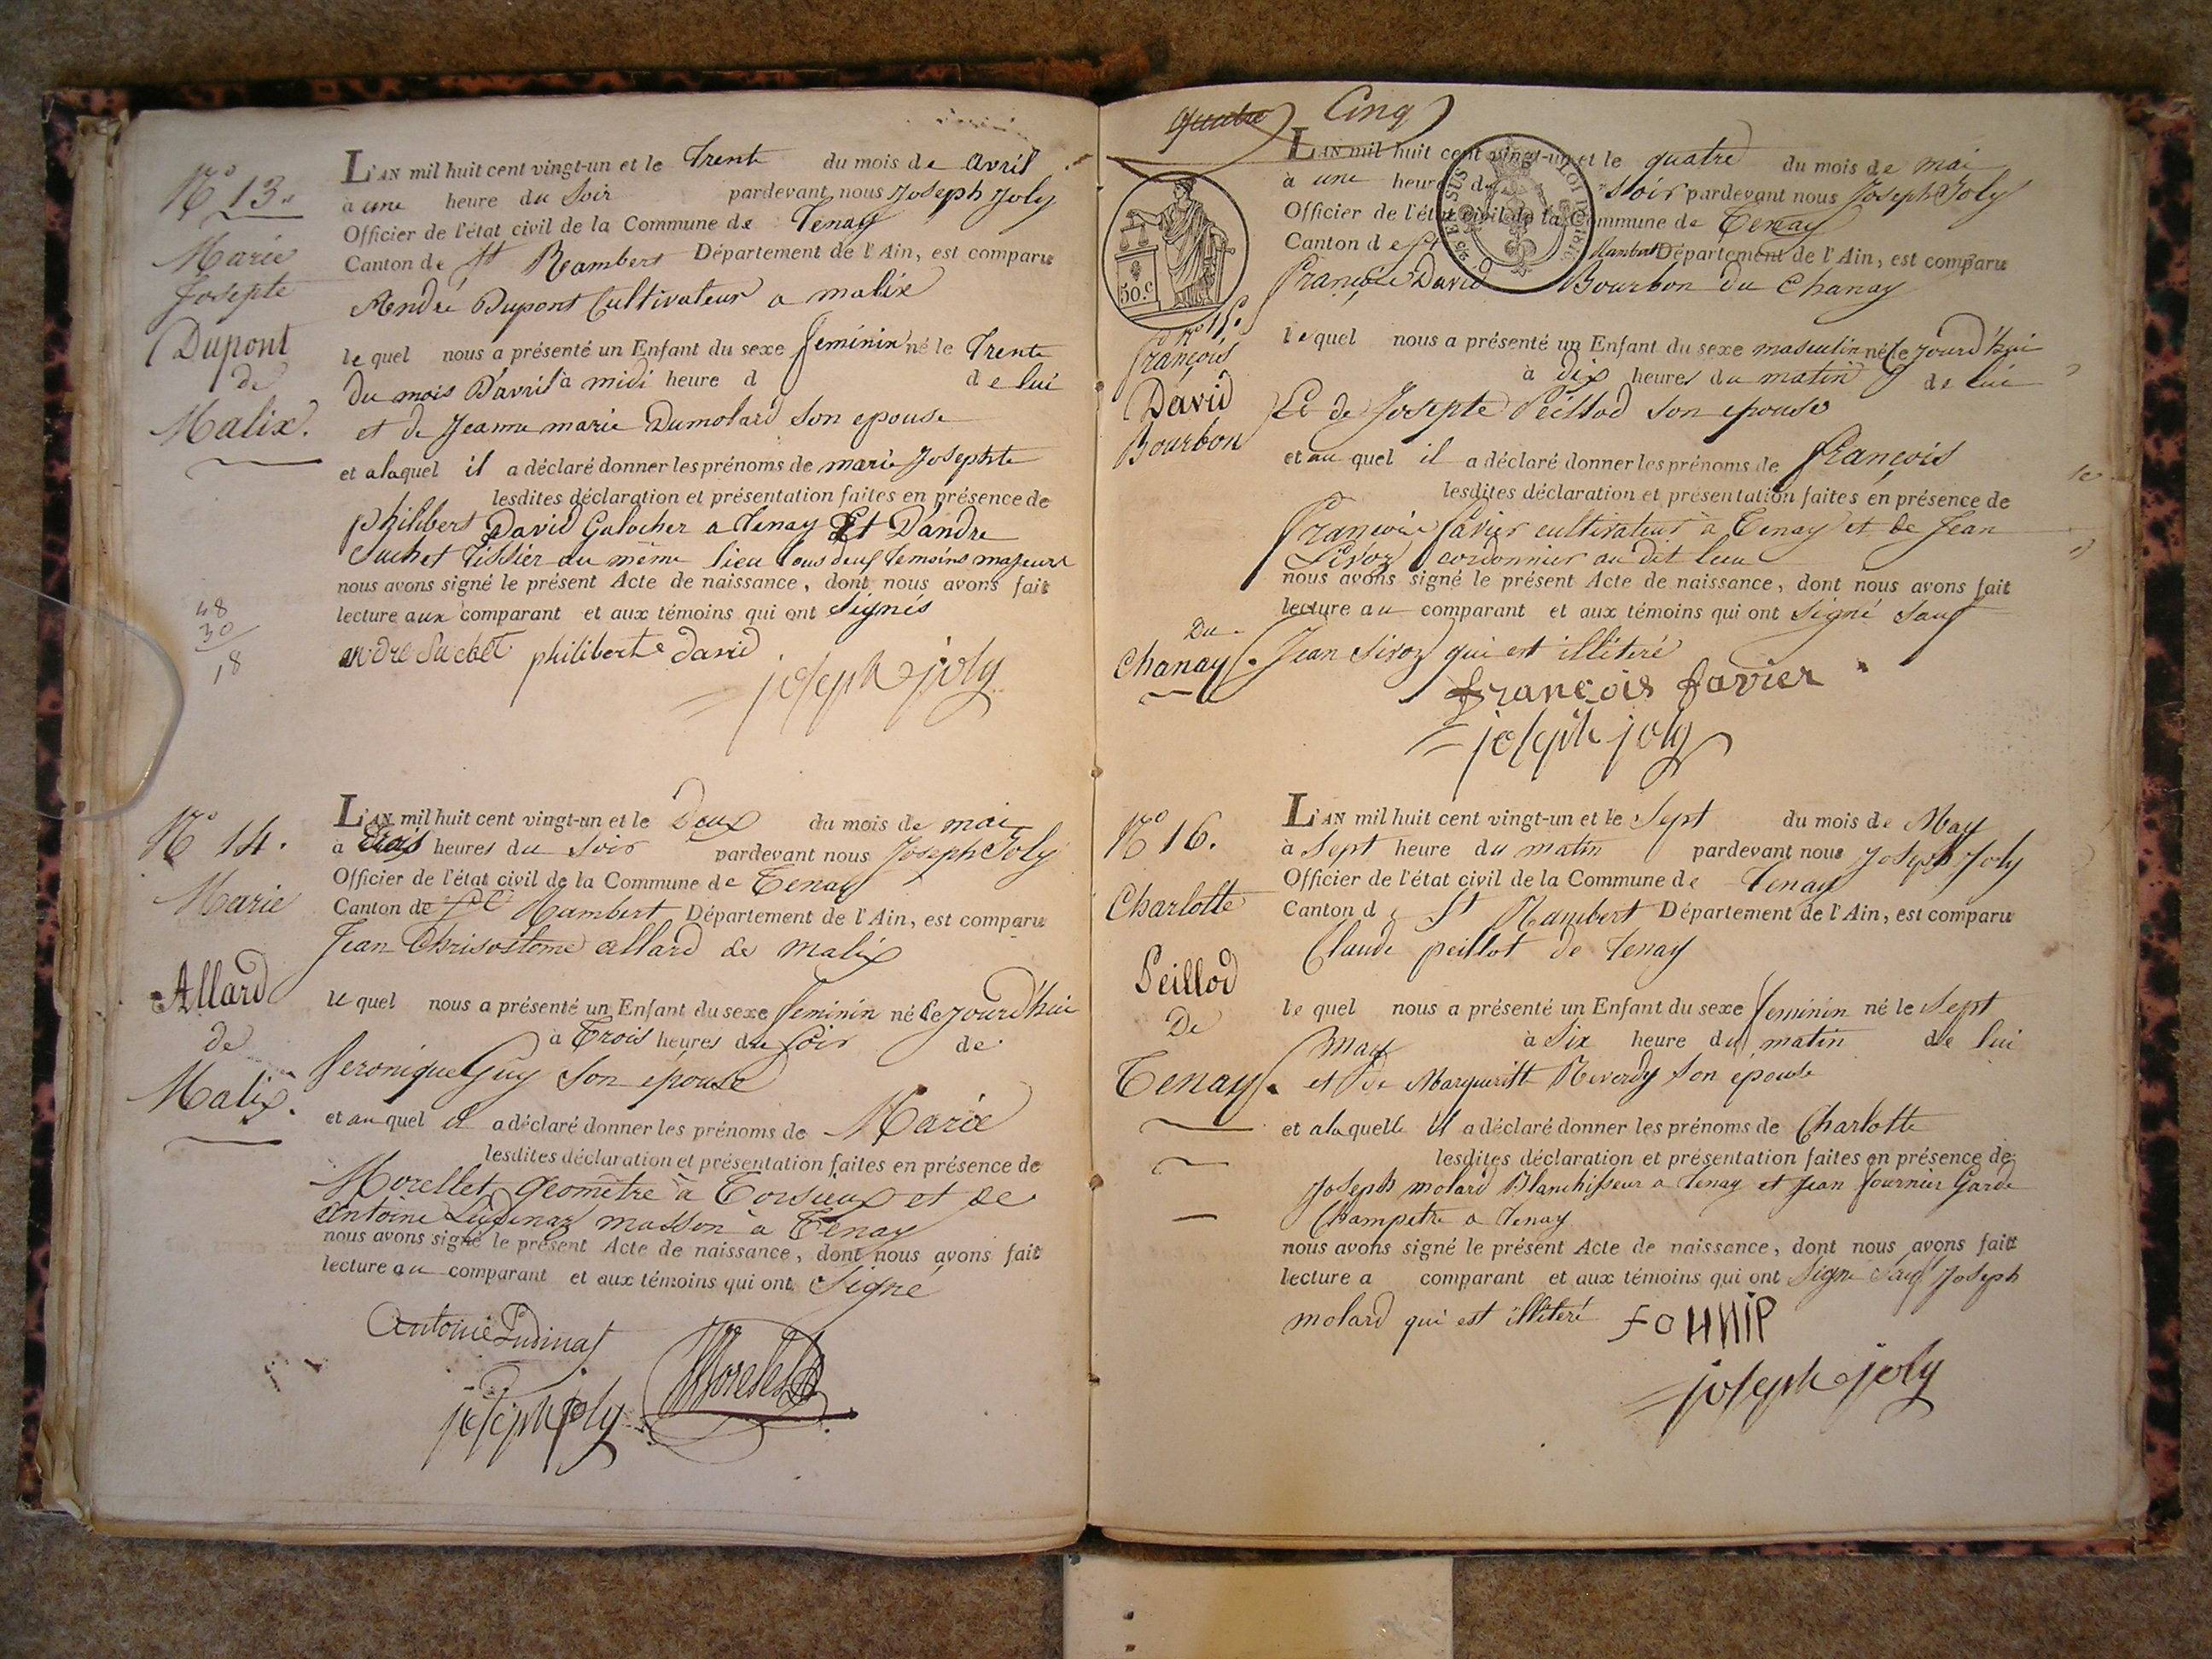 N° 13.
Marie
Josepte
Dupont
de
Malix.
48
30
18
L'AN mil huit cent vingt-un et le Trente du mois de avril
à une heure du Soir pardevant nous Joseph Joly
Officier de l'état civil de la Commune de Tenay
Canton de St Rambert Département de l'Ain, est comparu
André Dupont Cultivateur a malix
le quel nous a présenté un Enfant du sexe feminin né le Trente
du mois D'avril à midi heure d de lui
et de Jeanne marie Dumolard son epouse
et alaquel il a déclaré donner les prénoms de marie Josephte
lesdites déclaration et présentation faites en présence de
philibert David Galocher a Tenay Et D'andre
Suchet Tissier du même lieu tous deux temoins majeurs
nous avons signé le présent Acte de naissance, dont nous avons fait
lecture aux comparant et aux témoins qui ont signés
andre Suchet philiberte david
joseph joly
N° 14.
Marie
Allard
de
Malix.
L'AN mil huit cent vingt-un et le Deux du mois de mai
à trois heures du soir pardevant nous Joseph Joly
Officier de l'état civil de la Commune de Tenay
Canton de St Rambert Département de l'Ain, est comparu
Jean Chrisostome allard de malix
le quel nous a présenté un Enfant du sexe feminin né le jourd'hui
à Trois heures du soir de
Veronique Guy son epouse
et au quel il a déclaré donner les prénoms de Marie
lesdites déclaration et présentation faites en présence de
Morellet géomètre à Torcieux et de
Antoine Ludinaz masson à Tenay
nous avons signé le présent Acte de naissance, dont nous avons fait
lecture au comparant et aux témoins qui ont Signé
Antoine Ludinaz
joseph joly Morellet
Quatre Cinq
50.c
LOI DE 1816
N° 15.
François
David
Bourbon
Du
Chanay.
L'AN mil huit cent vingt-un et le quatre du mois de mai
à une heure du soir pardevant nous Joseph Joly
Officier de l'état civil de la Commune de Tenay
Canton de St Rambert Département de l'Ain, est comparu
François David Bourbon du Chanay
lequel nous a présenté un Enfant du sexe masculin né le jourd'hui
à dix heures du matin de lui
Et de Josepte Peillod son epouse
et au quel il a déclaré donner les prénoms de François
lesdites déclaration et présentation faites en présence de
François favier cultivateur à Tenay et de Jean
Sivoz cordonnier au dit lieu
nous avons signé le présent Acte de naissance, dont nous avons fait
lecture au comparant et aux témoins qui ont signé sauf
Jean Sivoz qui est illitéré
françois favier
joseph joly
N° 16.
Charlotte
Peillod
De
Tenay.
L'AN mil huit cent vingt-un et le Sept du mois de May
à Sept heure du matin pardevant nous Joseph Joly
Officier de l'état civil de la Commune de Tenay
Canton de St Rambert Département de l'Ain, est comparu
Claude peillot de Tenay
le quel nous a présenté un Enfant du sexe feminin né le Sept
May à Six heure du matin de lui
et de Margueritte Reverdy son épouse
et alaquelle il a déclaré donner les prénoms de Charlotte
lesdites déclaration et présentation faites en présence de
Joseph molard Blanchisseur a Tenay et Jean fournier Garde
Champetre a Tenay
nous avons signé le présent Acte de naissance, dont nous avons fait
lecture a comparant et aux témoins qui ont signé sauf Joseph
molard qui est illitéré
joseph joly